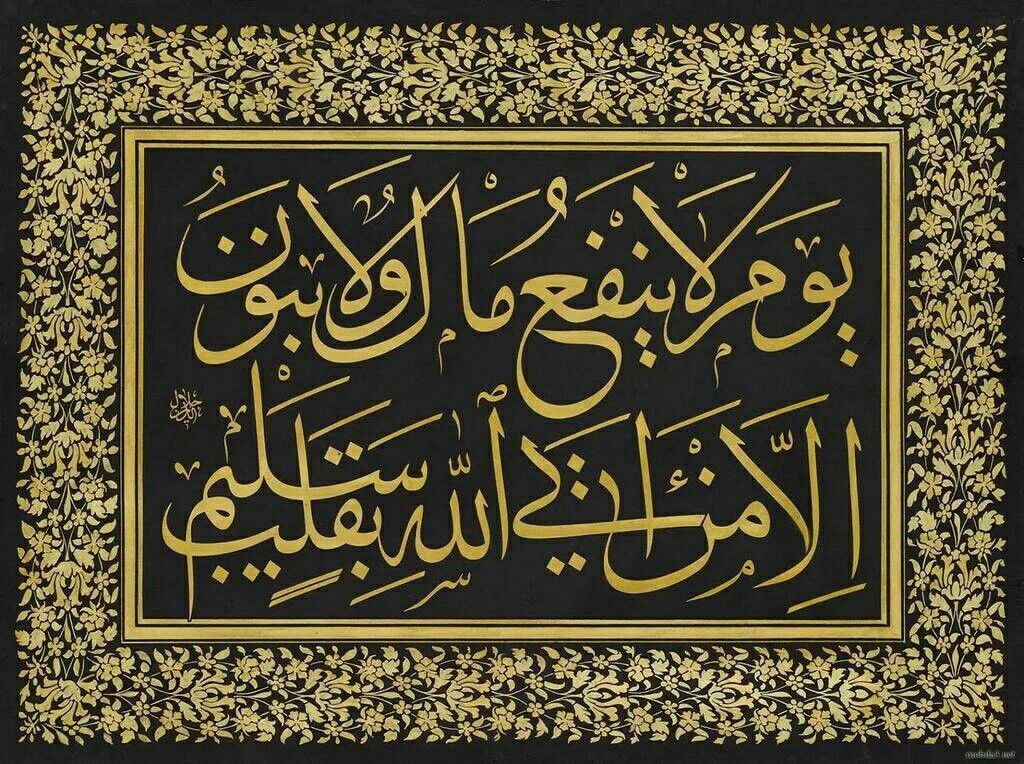 يوم لا ينفع مال ولا بنون
الا من اتى الله بقلب سليم